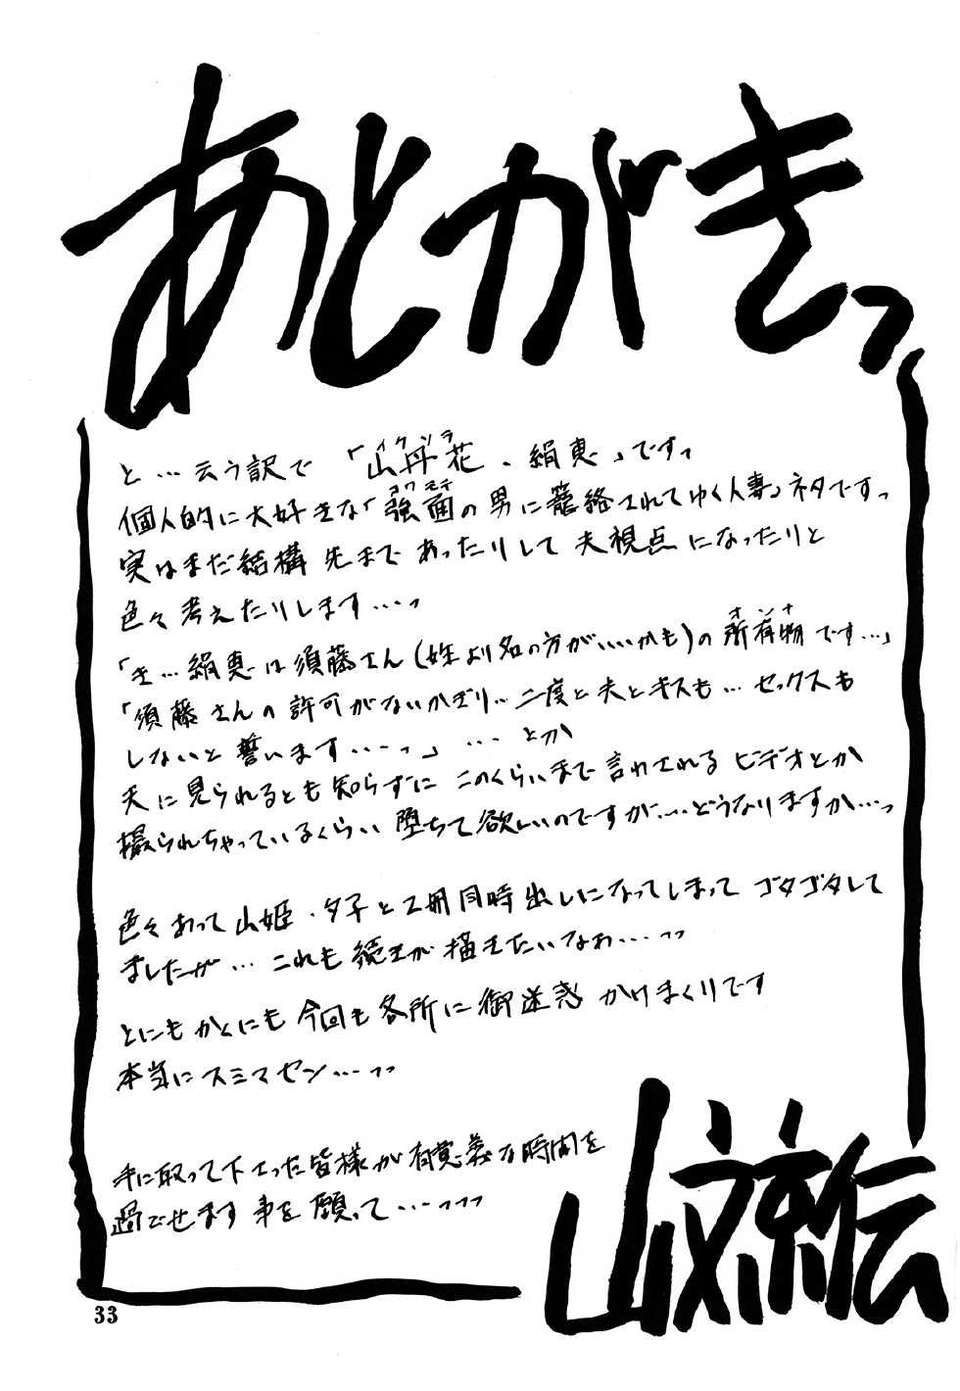 あとがきっ
と…云う訳で「山丹花、絹恵」ですっ
個人的に大好きな「強面の男に籠絡されてゆく人妻」ネタですっ
実はまだ結構 先まで あったりして 夫視点 になったりと
色々 考えたりします…っ
「き…絹恵は須藤さん(姓より名の方がいいかも)の所有物です…」
「須藤さんの許可がないかぎり…二度と夫とキスも…セックスも
しないと 誓います……っ」…とか
夫に見られるとも知らずに このくらいまで 言わされる ビデオとか
撮られちゃっているくらい 堕ちて欲しいのですが…どうなりますか…っ
色々あって 山姫・夕子と2冊同時出しになってしまって ゴタゴタして
ましたが… これも 続きが 描きたいなぁ…っっ
とにもかくにも 今回も 各所に御迷惑 かけまくりです
本当にスミマセン…っっ
手に取って下さった皆様が有意義な時間を
過ごせます事を願って…っっっ
山文京伝
33